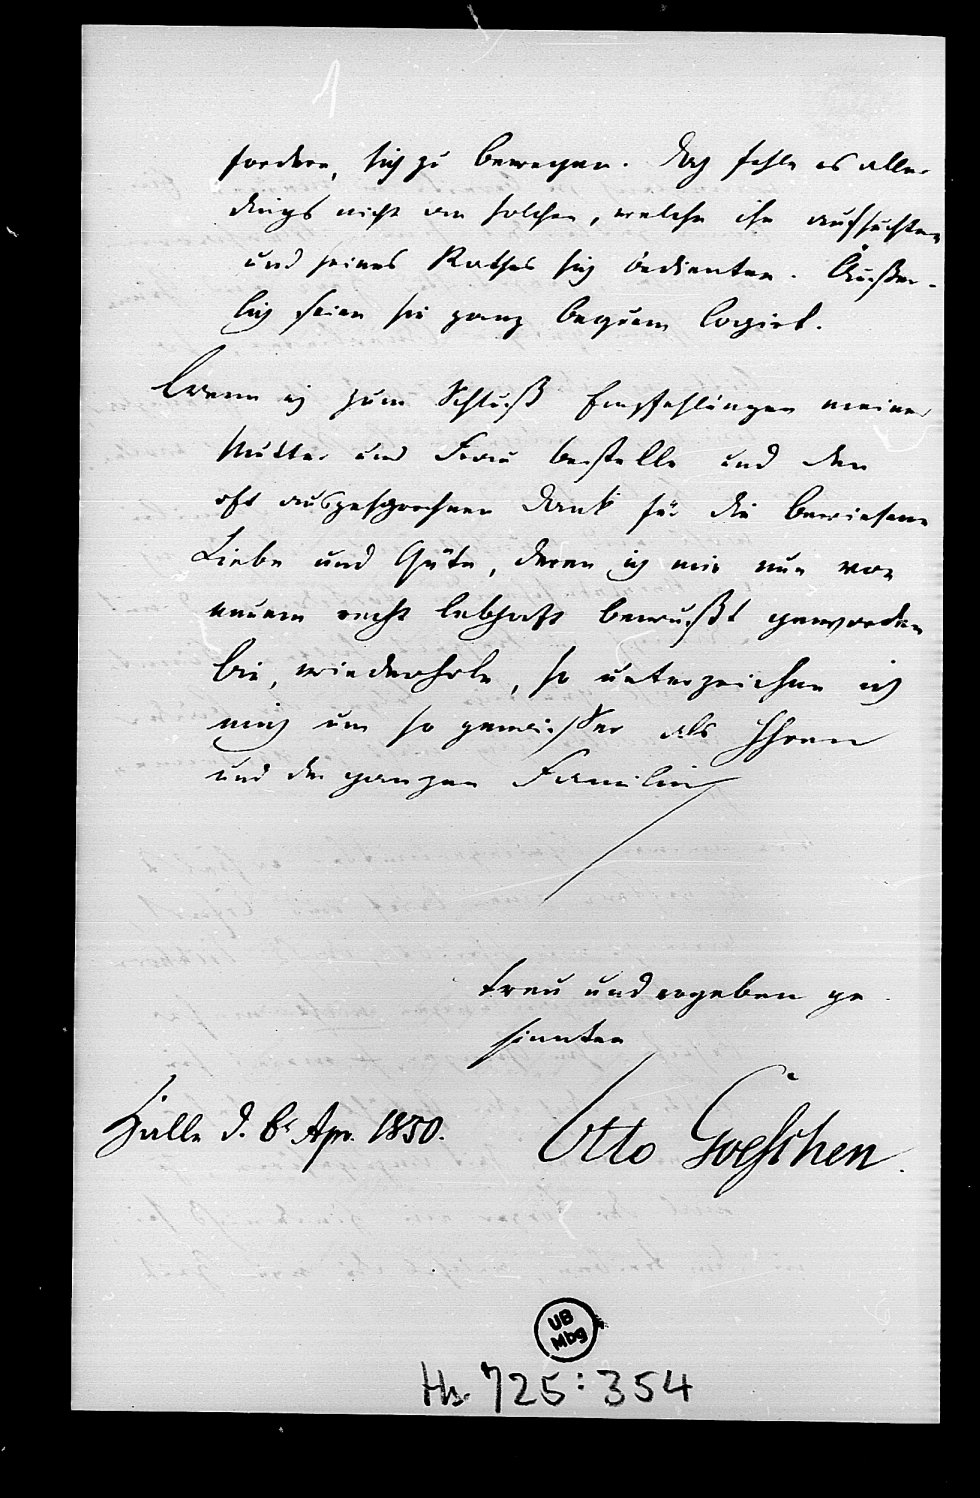 fordere, sich zu bewegen. Doch fehle es aller-
dings nicht an solchen, welche ihn aufsuchten
und seines Rathes sich bedienten. Äußer-
lich seien sie ganz bequem logirt.
Wenn ich zum Schluß Empfehlungen meiner
Mutter und Frau bestelle und den
oft ausgesprochenen Dank für die bewiesene
Liebe und Güte, deren ich mir nun von
neuem recht lebhaft bewußt geworden
bin, wiederhole, so unterzeichne ich
mich um so gewisser als Ihren
und der ganzen Familie
treu und ergeben ge-
sinnten
Halle d. 6t Apr. 1850.
Otto Goeschen.
UB
Mbg
Hs. 725:354